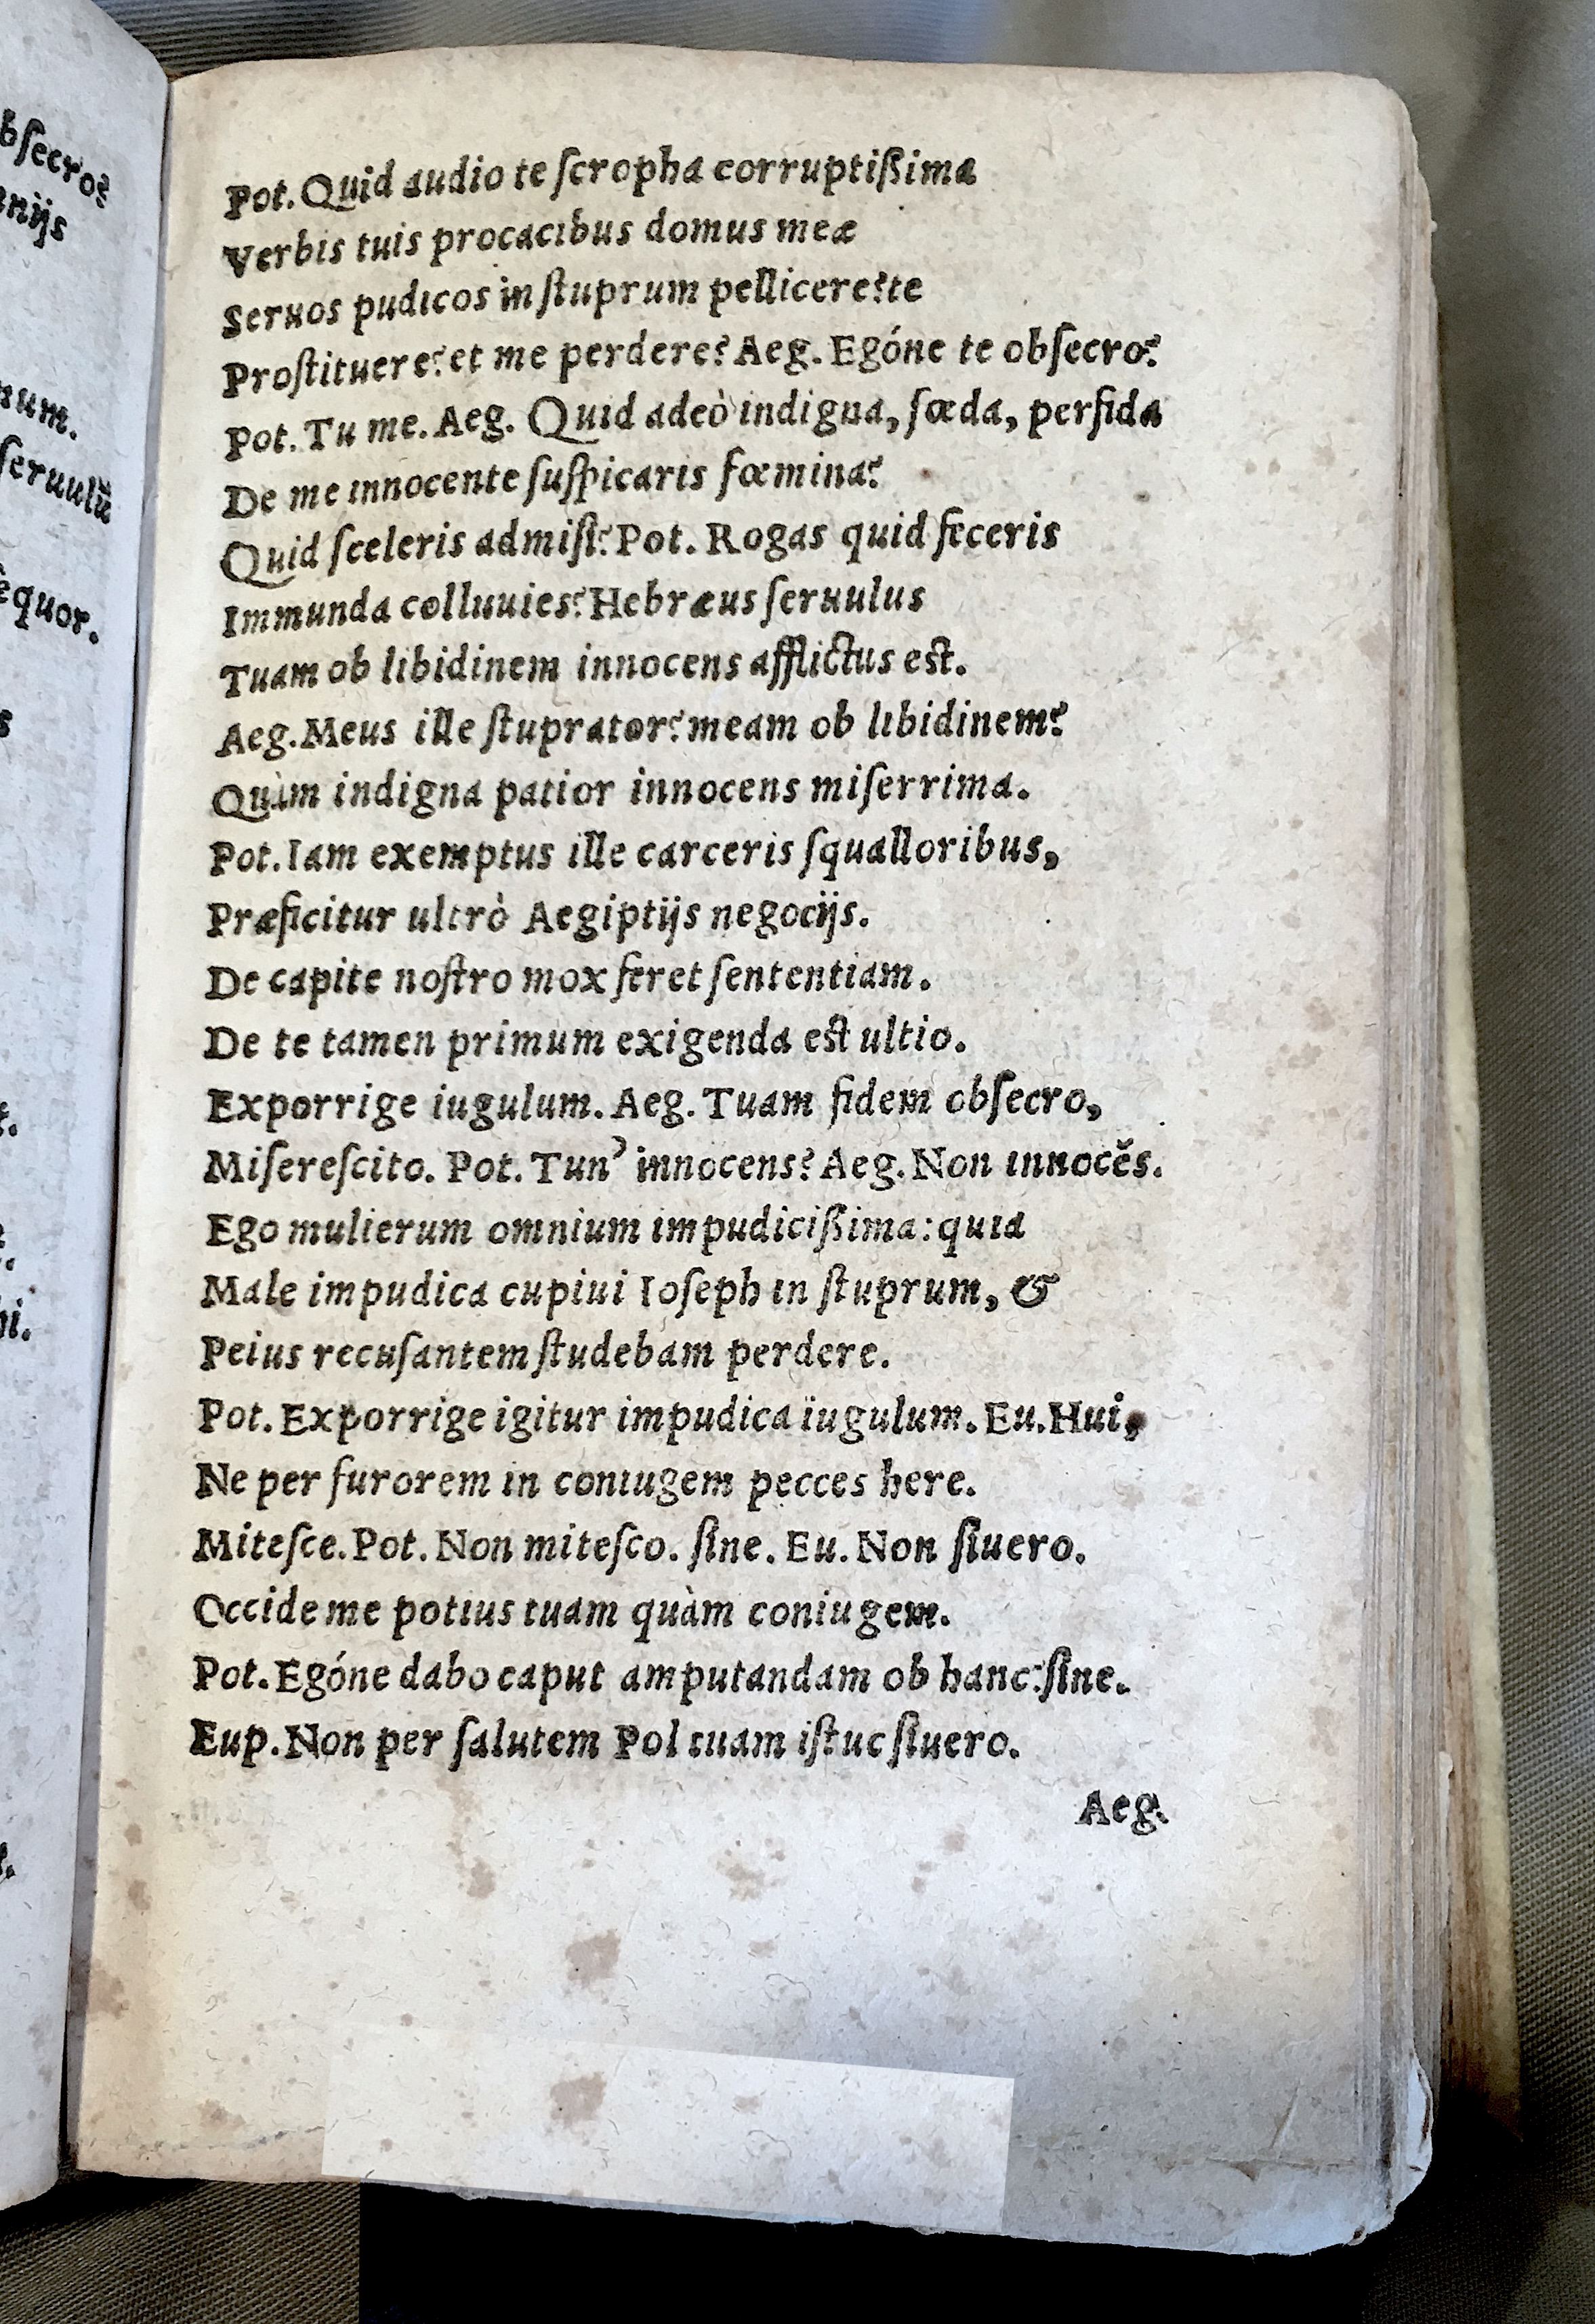 bſecro?
anijs
num.
ſeruulũ
equor.
s
hi.
Pot. Quid audio te ſcropha corruptiſsima
Verbis tuis procacibus domus meæ
Seruos pudicos in ſtuprum pellicere? te
Proſtituere? et me perdere? Aeg. Egóne te obſecro?
Pot. Tu me. Aeg. Quid adeò indigna, fœda, perfida
De me innocente ſuſpicaris fœmina?
Quid ſceleris admiſi? Pot. Rogas quid feceris
Immunda colluuies? Hebræus ſeruulus
Tuam ob libidinem innocens afflictus est.
Aeg. Meus ille ſtuprator? meam ob libidinem?
Quàm indigna patior innocens miſerrima.
Pot. Iam exemptus ille carceris ſqualloribus,
Præficitur ultrò Aegiptijs negocijs.
De capite noſtro mox feret ſententiam.
De te tamen primum exigenda est ultio.
Exporrige iugulum. Aeg. Tuam fidem obſecro,
Miſereſcito. Pot. Tun' innocens? Aeg. Non innocẽs.
Ego mulierum omnium impudiciſsima: quia
Male impudica cupiui Ioſeph in ſtuprum, &
Peius recuſantem ſtudebam perdere.
Pot. Exporrige igitur impudica iugulum. Eu. Hui,
Ne per furorem in coniugem pecces here.
Miteſce. Pot. Non miteſco. ſine. Eu. Non ſiuero.
Occide me potius tuam quàm coniugem.
Pot. Egóne dabo caput amputandam ob hanc? ſine.
Eup. Non per ſalutem Pol tuam iſtuc ſiuero.
Aeg.